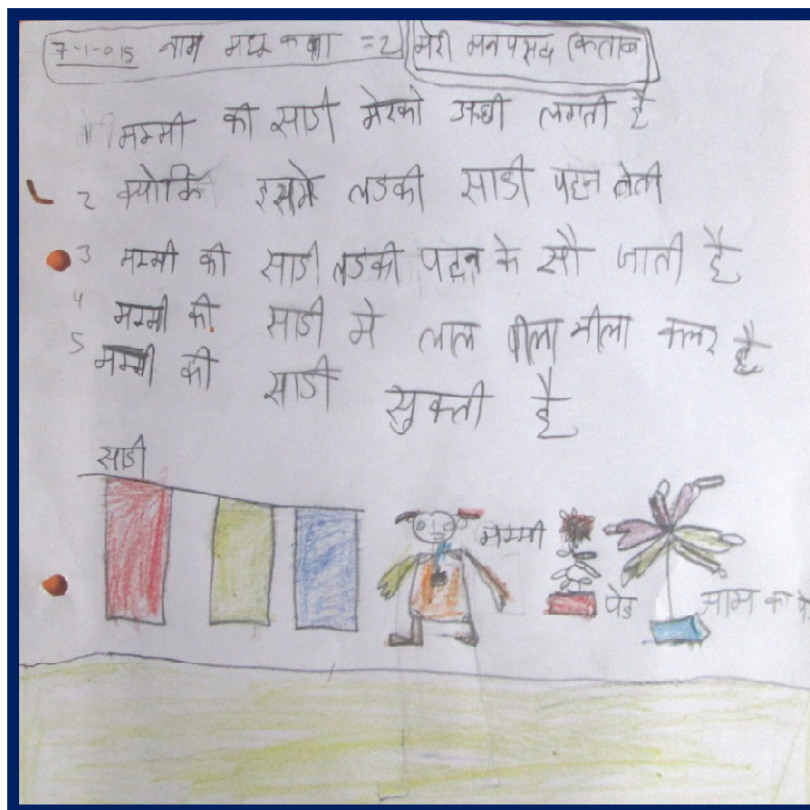 7-1-015 नाम कक्षा = 2 मेरी मनपसद किताब
1 मम्मी की साडी मेरको अछी लगती है
2 क्योकि इसमे लडकी साडी पहन लेती
3 मम्मी की साडी लडकी पहन के सौ जाती है
4 मम्मी की साडी मे लाल पीला नीला कलर है
5 मम्मी की साडी सुकती है
साडी
मम्मी
पेड
आम का